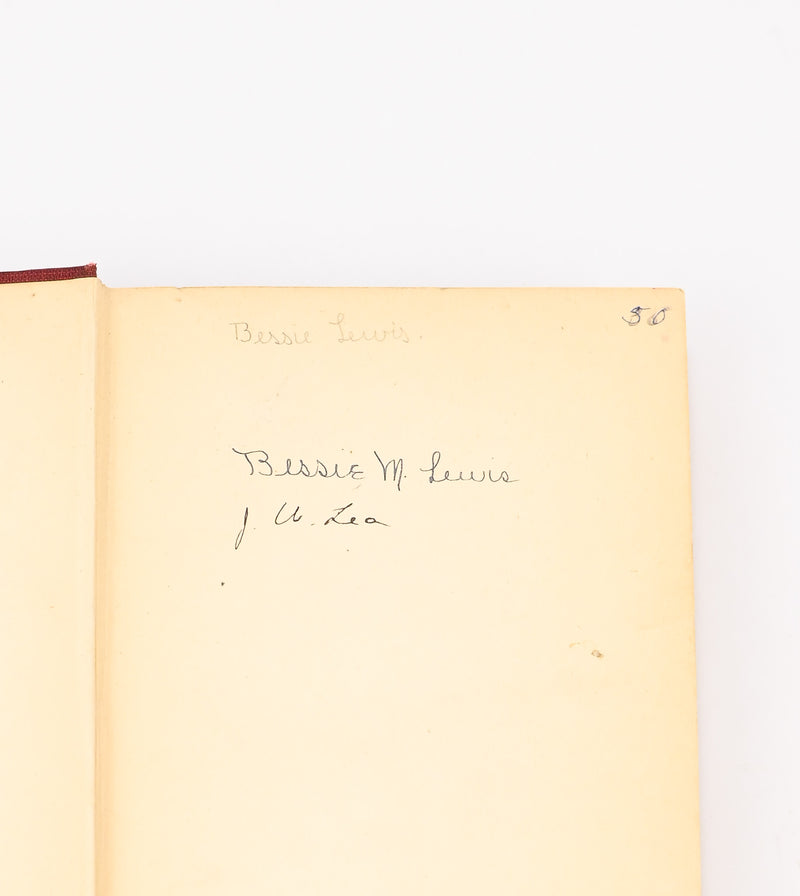 Bessie Lewis.
50
Bessie M. Lewis
J. W. Lea